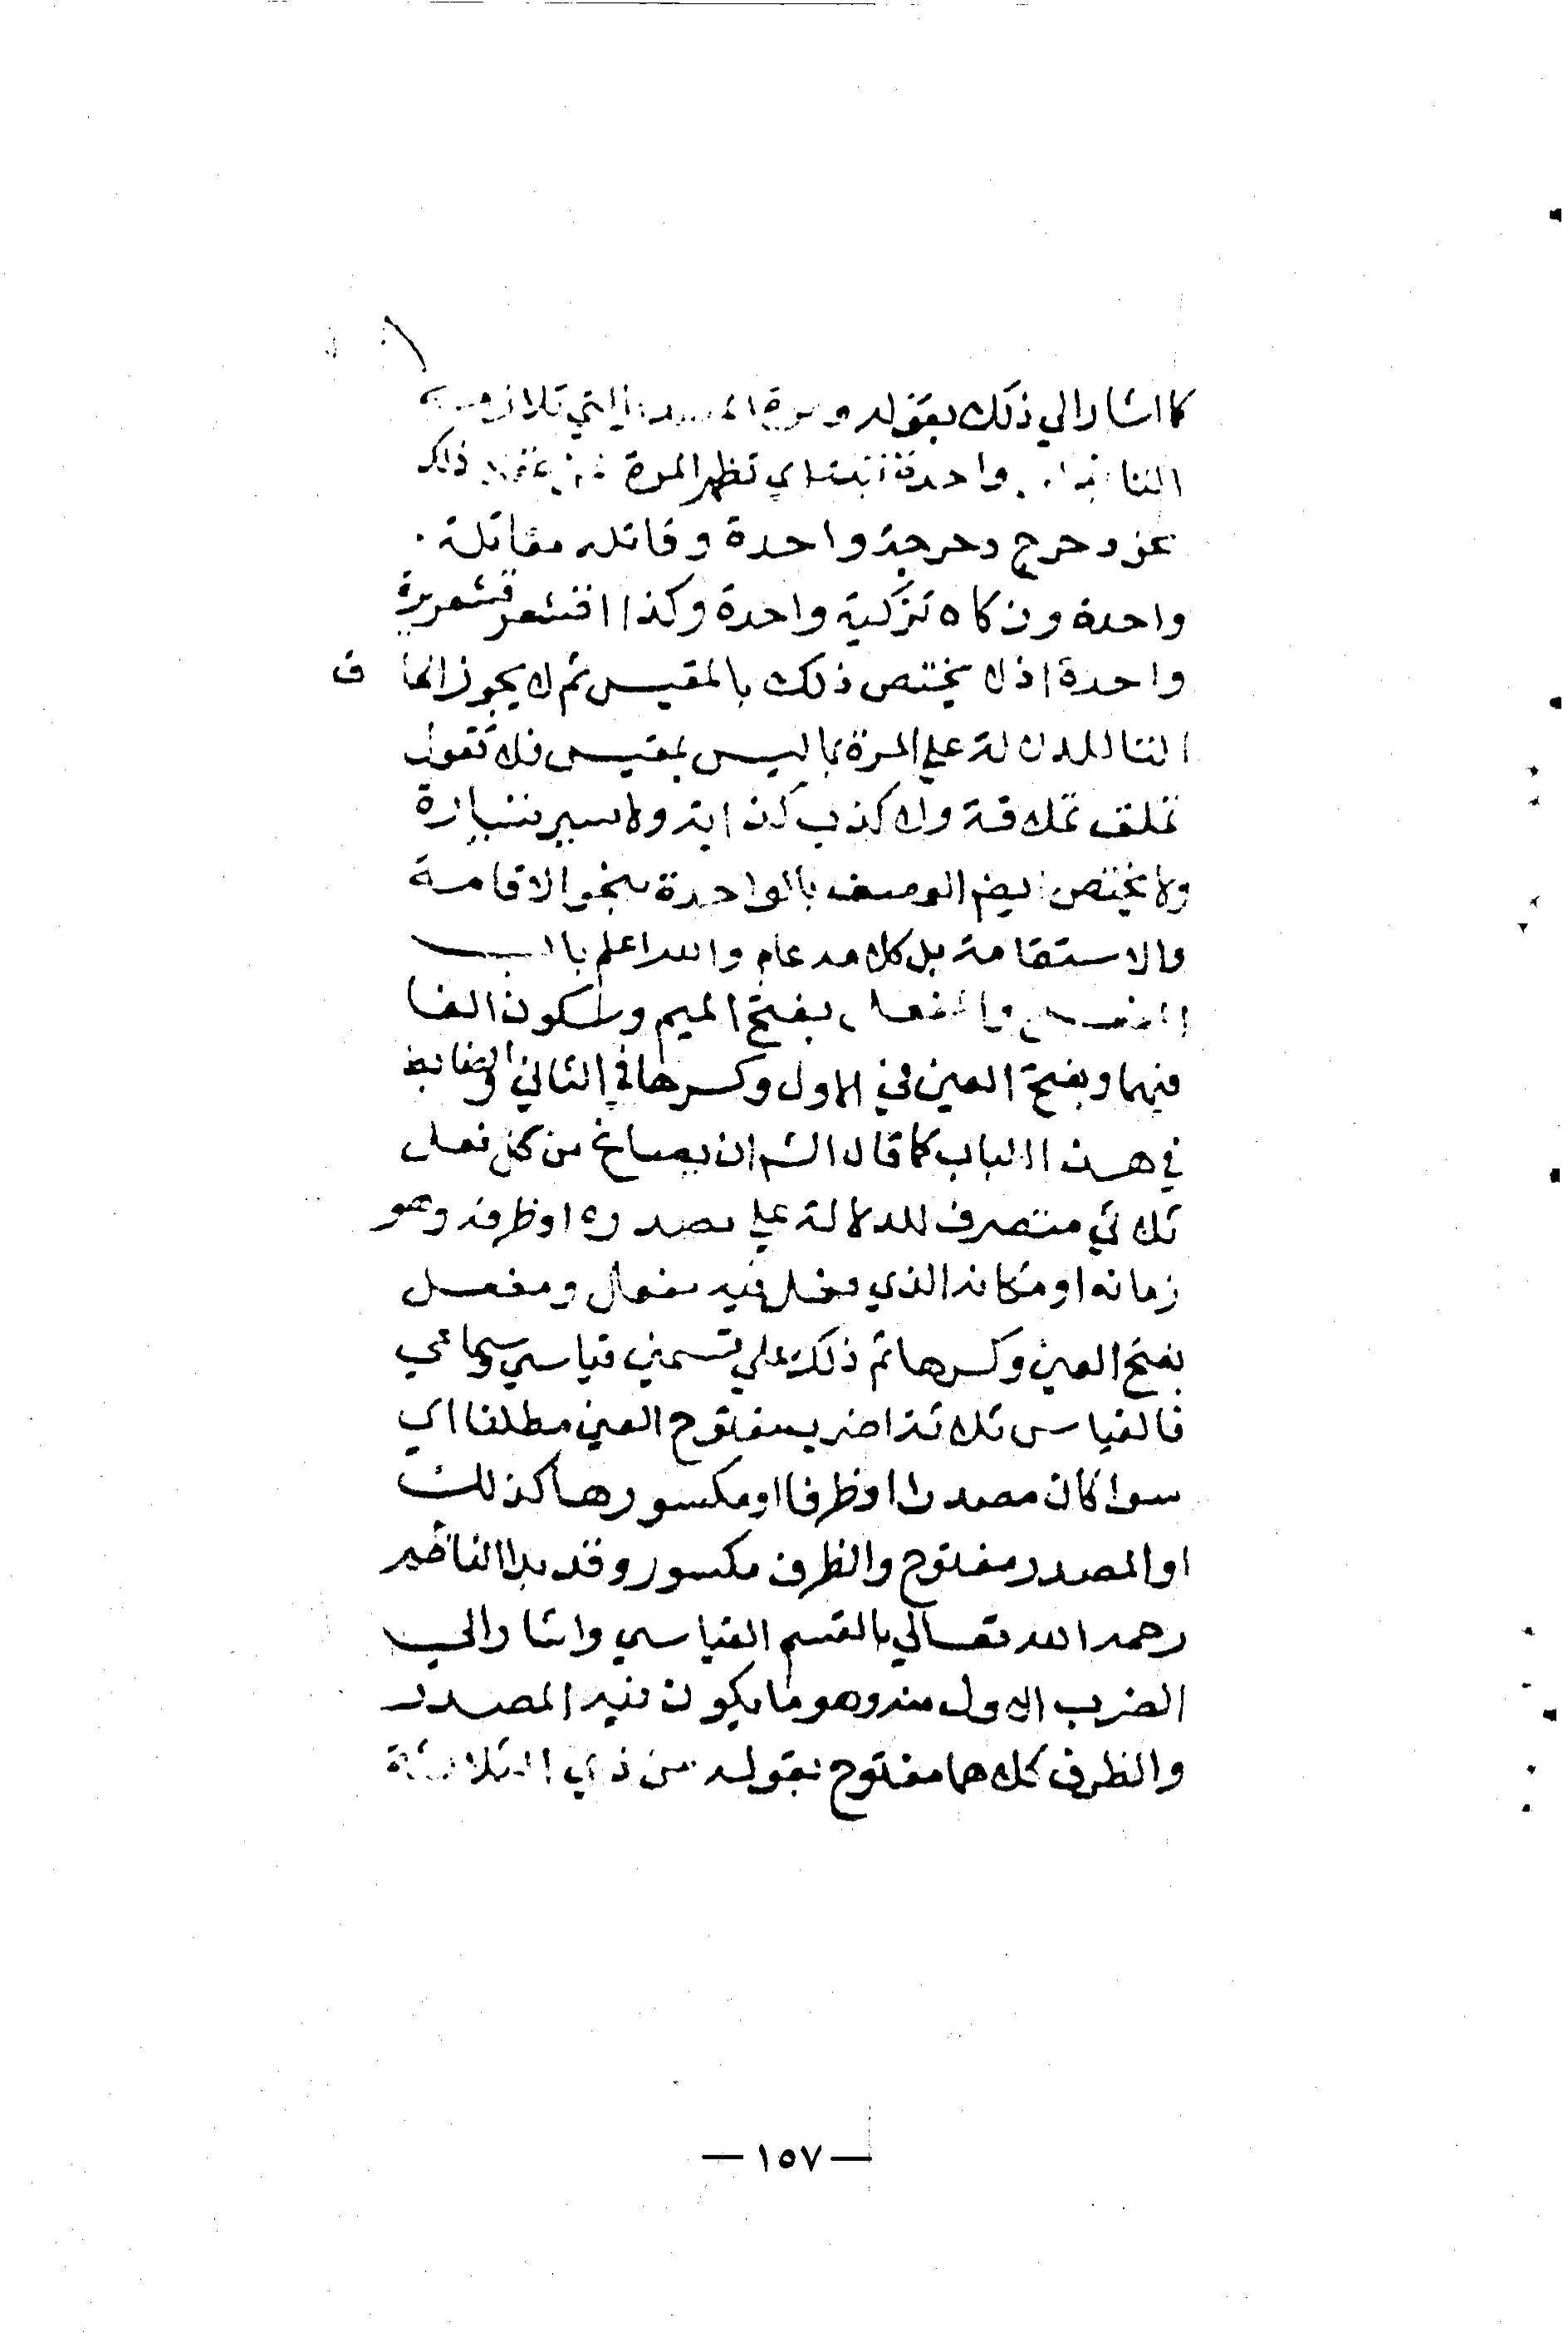 كما اشار الي ذلك بقوله ومرة المصدر التي تلازمه
التا بواحدة تبتدا اي تظهر المرة ذلك
نحو دحرج دحرجة واحدة وقاتله مقاتلة
واحدة وزكاه تزكية واحدة وكذا اقشعر قشعريرة
واحدة اذ لا يختص ذلك بالمقيس ثم لا يجوز الحاق
التا للدلالة علي المرة بما ليس بمقيس فلا تقول
تملق تملاقة ولا كذب كذابة ولا سير تسيارة
ولا يختص ايضا الوصف بالواحدة بنحو الاقامة
والاستقامة بل كل مد عام والله اعلم باب
المفعل والمفعل بفتح الميم وسكون الفا
فيهما وبفتح العين في الاول وكسرها في الثاني والضابط
في هذا الباب كما قال الش ان يصاغ من كل فعل
ثلاثي متصرف للدلالة علي مصدره او ظرفه وهو
زمانه او مكانه الذي فعل فيه مفعل ومفعل
بفتح العين وكسرها ثم ذلك علي قسمين قياسي وسماعي
فالقياس ثلاثة اضرب مفتوح العين مطلقا اي
سوا كان مصدرا او ظرفا او مكسورها كذلك
او المصدر مفتوح والظرف مكسور وقد بدا الناظم
رحمه الله تعالي بالقسم القياسي واشار الي
الضرب الاول منه وهو ما يكون فيه المصدر
والظرف كلاهما مفتوح بقوله من ذي الثلاثة
— ١٥٧ —